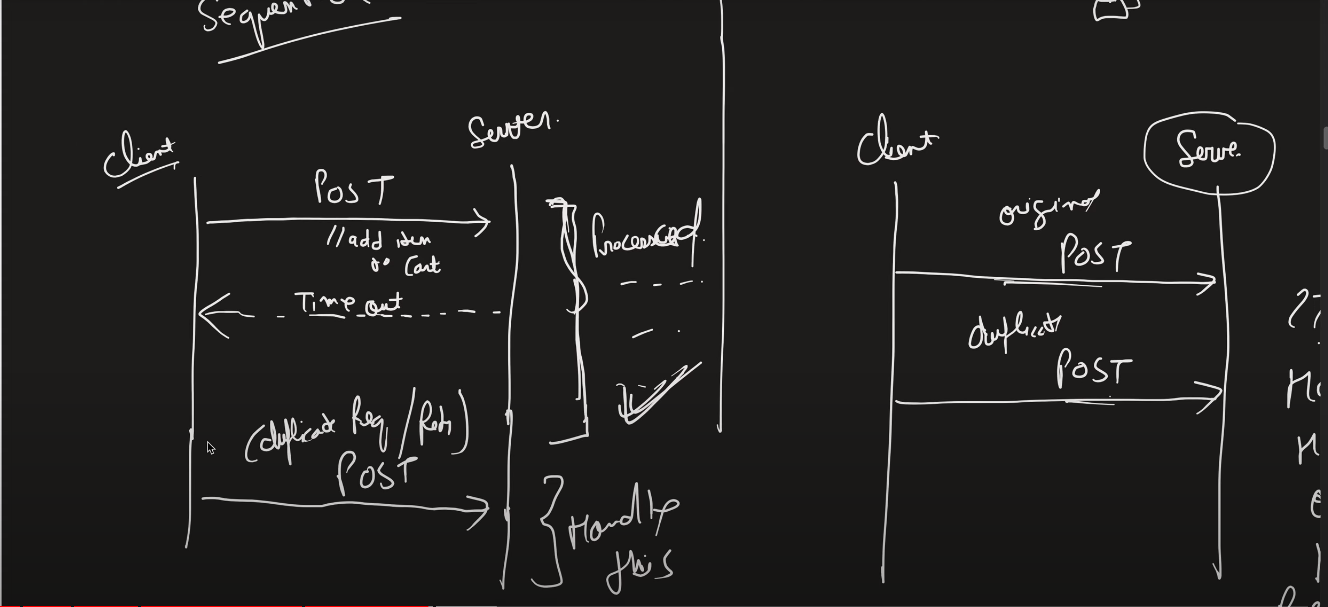 Sequen
Client
Server.
POST
//add item
to Cart
Time out
(duplicate Req/Retry)
POST
Processed.
Handle
this
Client
Serve
original
POST
duplicate
POST